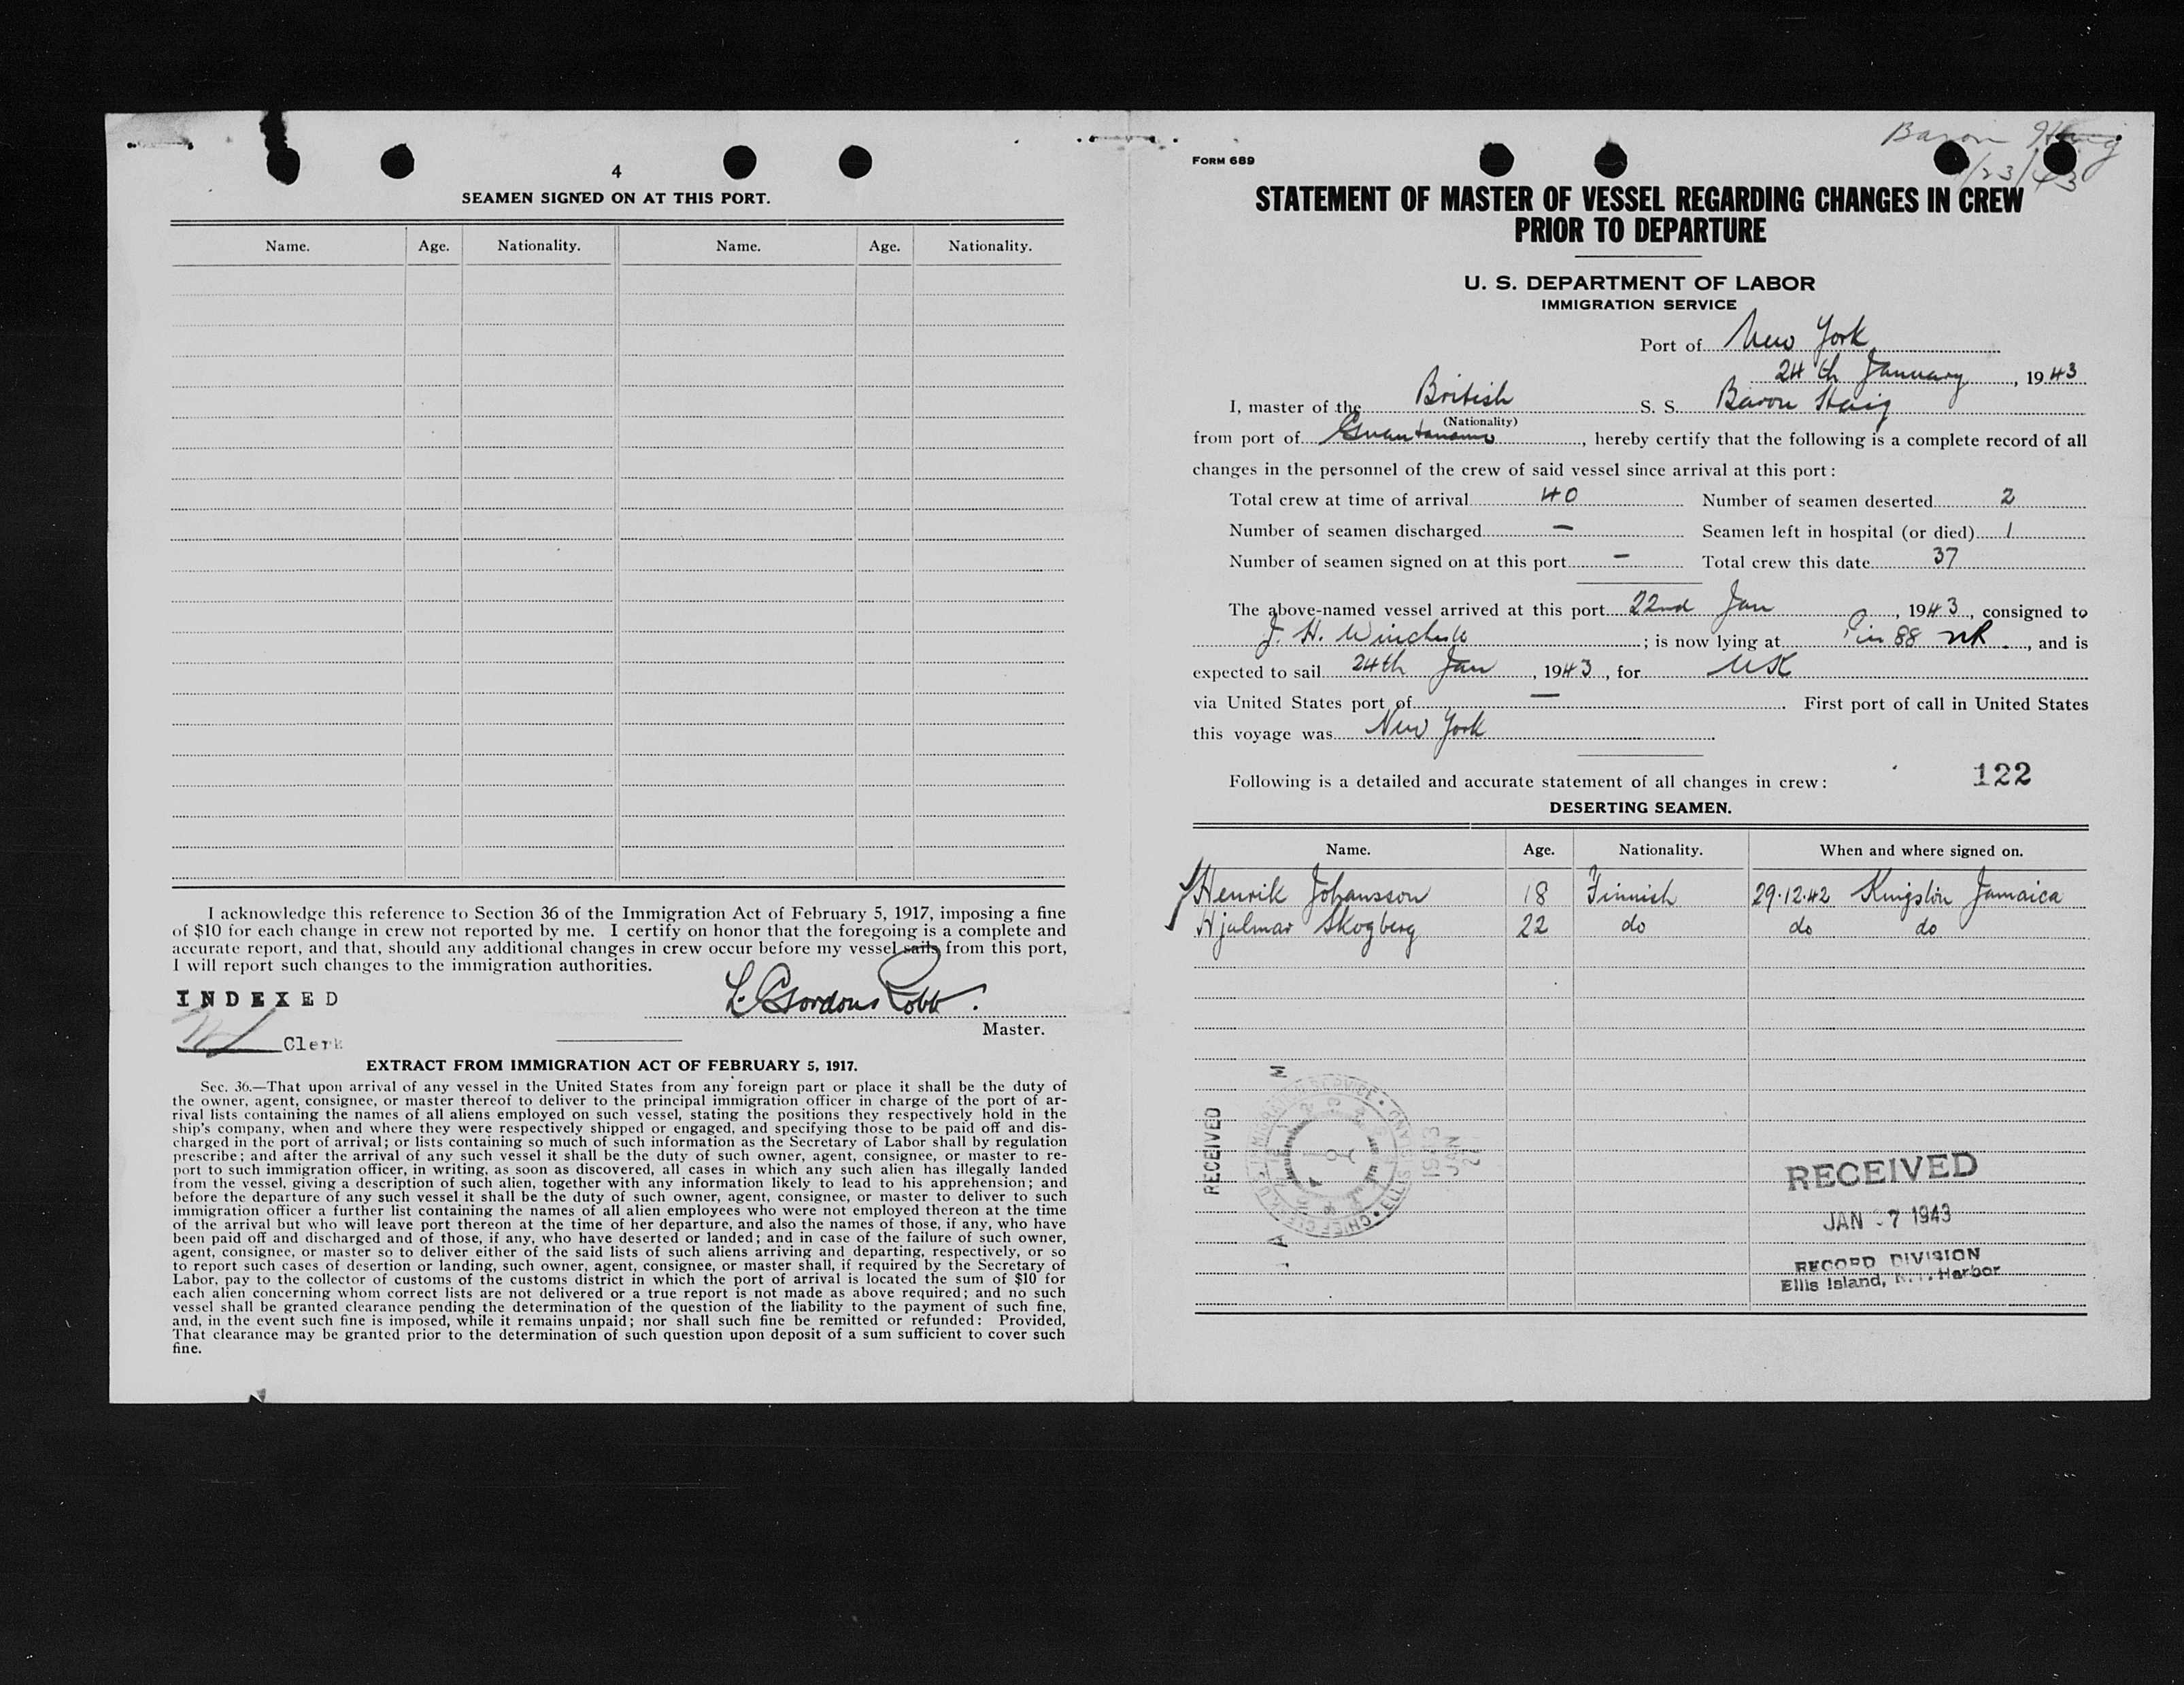 4
SEAMEN SIGNED ON AT THIS PORT.
Name. Age. Nationality. Name. Age. Nationality.
I acknowledge this reference to Section 36 of the Immigration Act of February 5, 1917, imposing a fine
of $10 for each change in crew not reported by me. I certify on honor that the foregoing is a complete and
accurate report, and that, should any additional changes in crew occur before my vessel sails from this port,
I will report such changes to the immigration authorities.
INDEXED
L. Gordons Robb.
Master.
Clerk
EXTRACT FROM IMMIGRATION ACT OF FEBRUARY 5, 1917.
Sec. 36.—That upon arrival of any vessel in the United States from any foreign part or place it shall be the duty of
the owner, agent, consignee, or master thereof to deliver to the principal immigration officer in charge of the port of ar-
rival lists containing the names of all aliens employed on such vessel, stating the positions they respectively hold in the
ship's company, when and where they were respectively shipped or engaged, and specifying those to be paid off and dis-
charged in the port of arrival; or lists containing so much of such information as the Secretary of Labor shall by regulation
prescribe; and after the arrival of any such vessel it shall be the duty of such owner, agent, consignee, or master to re-
port to such immigration officer, in writing, as soon as discovered, all cases in which any such alien has illegally landed
from the vessel, giving a description of such alien, together with any information likely to lead to his apprehension; and
before the departure of any such vessel it shall be the duty of such owner, agent, consignee, or master to deliver to such
immigration officer a further list containing the names of all alien employees who were not employed thereon at the time
of the arrival but who will leave port thereon at the time of her departure, and also the names of those, if any, who have
been paid off and discharged and of those, if any, who have deserted or landed; and in case of the failure of such owner,
agent, consignee, or master so to deliver either of the said lists of such aliens arriving and departing, respectively, or so
to report such cases of desertion or landing, such owner, agent, consignee, or master shall, if required by the Secretary of
Labor, pay to the collector of customs of the customs district in which the port of arrival is located the sum of $10 for
each alien concerning whom correct lists are not delivered or a true report is not made as above required; and no such
vessel shall be granted clearance pending the determination of the question of the liability to the payment of such fine,
and, in the event such fine is imposed, while it remains unpaid; nor shall such fine be remitted or refunded: Provided,
That clearance may be granted prior to the determination of such question upon deposit of a sum sufficient to cover such
fine.
Baron Haig
/23/43
FORM 689
STATEMENT OF MASTER OF VESSEL REGARDING CHANGES IN CREW
PRIOR TO DEPARTURE
U. S. DEPARTMENT OF LABOR
IMMIGRATION SERVICE
Port of New York
24th January, 1943
I, master of the British S. S. Baron Haig
(Nationality)
from port of Guantanamo, hereby certify that the following is a complete record of all
changes in the personnel of the crew of said vessel since arrival at this port:
Total crew at time of arrival 40 Number of seamen deserted 2
Number of seamen discharged — Seamen left in hospital (or died) 1
Number of seamen signed on at this port — Total crew this date 37
The above-named vessel arrived at this port 22nd Jan, 1943, consigned to
J. H. Winchester; is now lying at Pier 88 NR, and is
expected to sail 24th Jan, 1943, for UK
via United States port of — First port of call in United States
this voyage was New York
Following is a detailed and accurate statement of all changes in crew: 122
DESERTING SEAMEN.
Name. Age. Nationality. When and where signed on.
Henrik Johansson 18 Finnish 29.12.42 Kingston Jamaica
Hjalmar Skogberg 22 do do do
RECEIVED
RECEIVED
JAN 27 1943
RECORD DIVISION
Ellis Island, N.Y. Harbor